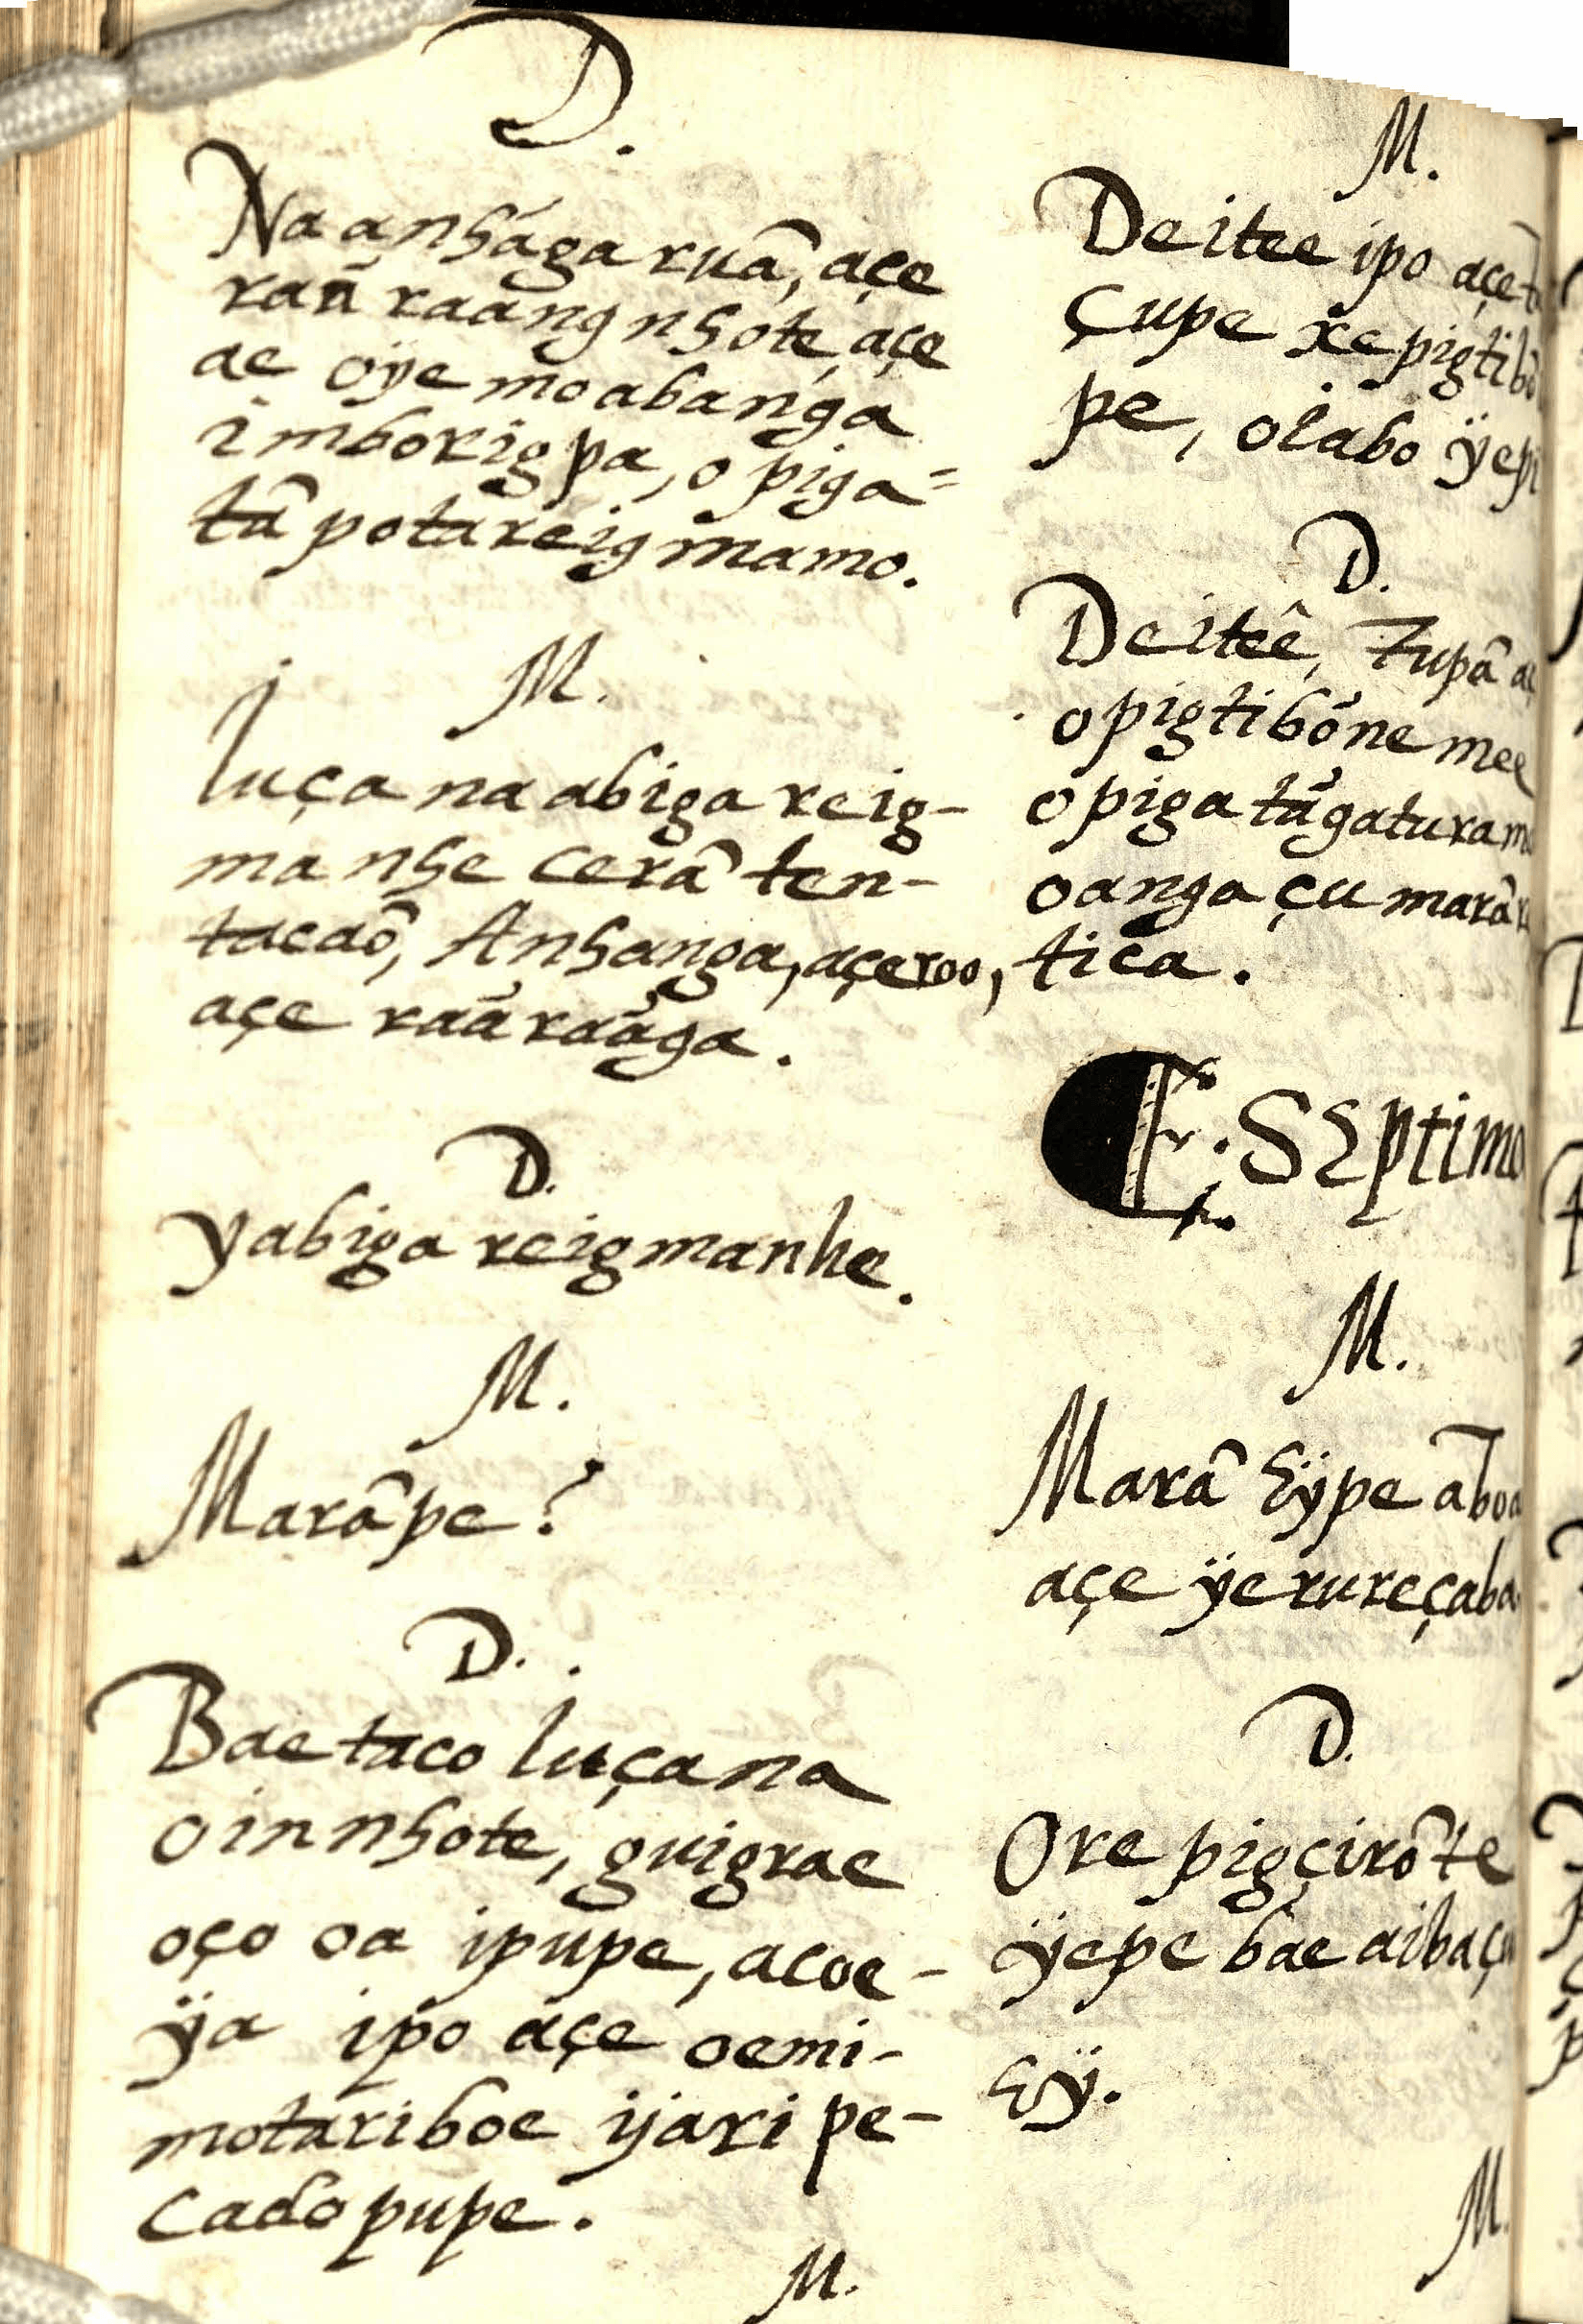 D.
Na anhága ruâ, açe
rañ raang nhote, açe
ae oÿe moabanga
imborigpa, o piga=
tâ potareigmamo.
M.
Iuça na abiga reig-
ma nhe cerâ ten-
tacaô, Anhanga, açeroo,
açe raâ raâga.
D.
Yabiga reigmanhe.
M.
Marâpe?
D.
Bae taco Iuça na
oin nhote, guigrae
oço oa ipupe, acoe-
ÿa ipo açe oemi-
motariboe ijari pe-
cado pupe.
M.
M.
Deitee ipo açe
çupe xe pigtibô
pe, oiabo ÿepi
D.
Deiteê, Tupâ
opigtibône mee
opiga tâgaturam
oanga çu marâ
tica.
Septimo
M.
Marâ hÿpe aboa
açe ÿerureçaba
D.
Ore pigçirôte
ÿepe bae aibaçu
hÿ.
M.